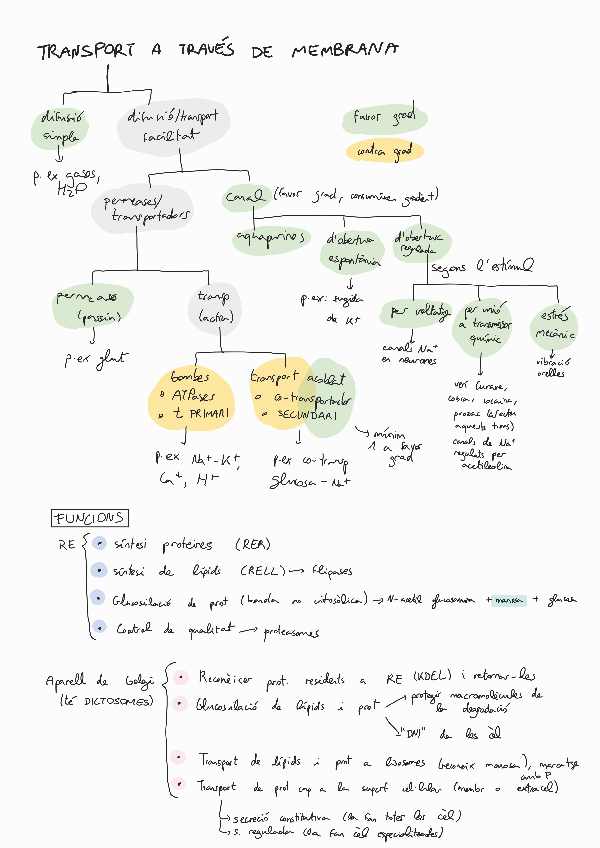 TRANSPORT A TRAVÉS DE MEMBRANA
difusió simple
p. ex gasos, H2O
difusió/transport facilitat
favor grad
contra grad
permeases/ transportadors
canal (favor grad, consumeixen gradient)
aquaporines
d'obertura espontània
p.ex: fugida de K+
d'obertura regulada
segons l'estímul
per voltatge
canals Na+ en neurones
per unió a transmissor químic
verí curare, cobra, cocaïna, prozac (afecten aquests trans)
canals de Na+ regulats per acetilcolina
estrés mecànic
vibració orelles
permeases (passiu)
p.ex glut
transp (actiu)
bombes
• ATPases
• t PRIMARI
p.ex Na+-K+, Ca+, H+
transport acoblat
• co-transportador
• SECUNDARI
p.ex co-transp glucosa - Na+
→ mínim 1 a favor grad
FUNCIONS
RE
• síntesi proteïnes (RER)
• síntesi de lípids (RELL) → flipases
• Glucosilació de prot (banda no citosòlica) → N-acetil glucosamina + manosa + glucosa
• Control de qualitat → proteasomes
Aparell de Golgi
(té DICTOSOMES)
• Reconèixer prot. residents a RE (KDEL) i retornar-les
• Glucosilació de lípids i prot → protegir macromolècules de la degradació
→ "DNI" de les cèl
• Transport de lípids i prot a lisosomes (reconeix manosa), marcatge amb P
• Transport de prot cap a la superf cel·lular (membr o extracel)
→ secreció constitutiva (la fan totes les cèl)
→ s. regulada (la fan cèl especialitzades)